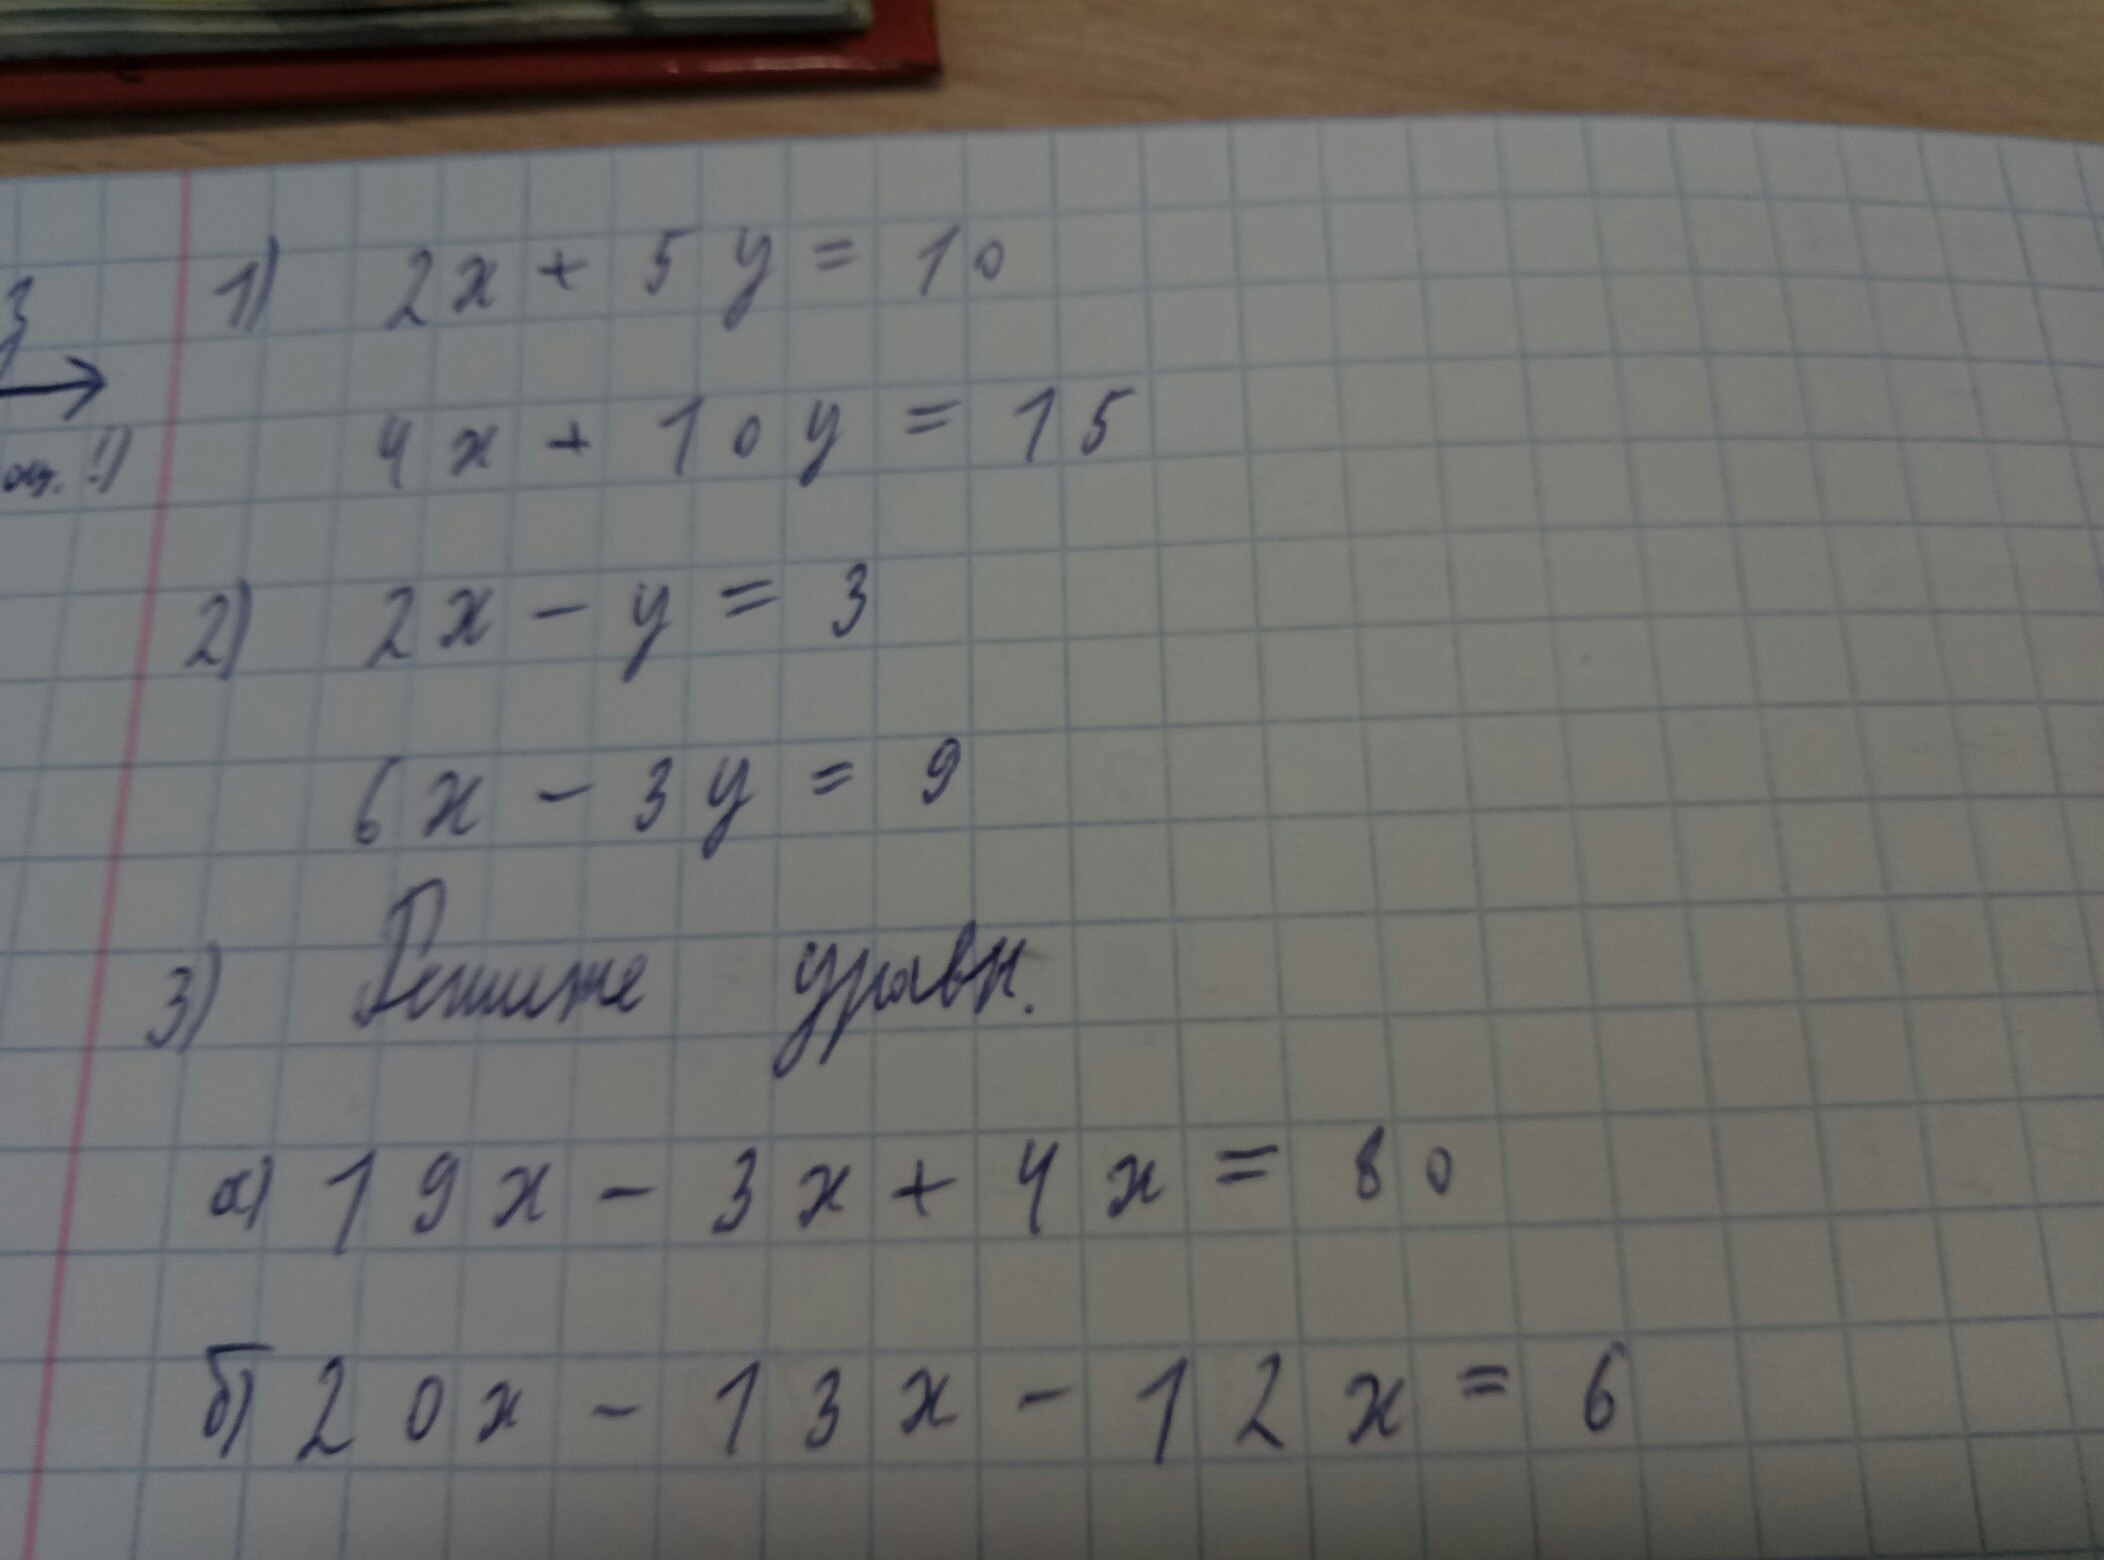 1) 2x + 5y = 10
4x + 10y = 15
2) 2x - y = 3
6x - 3y = 9
3) Решите уравн.
а) 19x - 3x + 4x = 80
б) 20x - 13x - 12x = 6